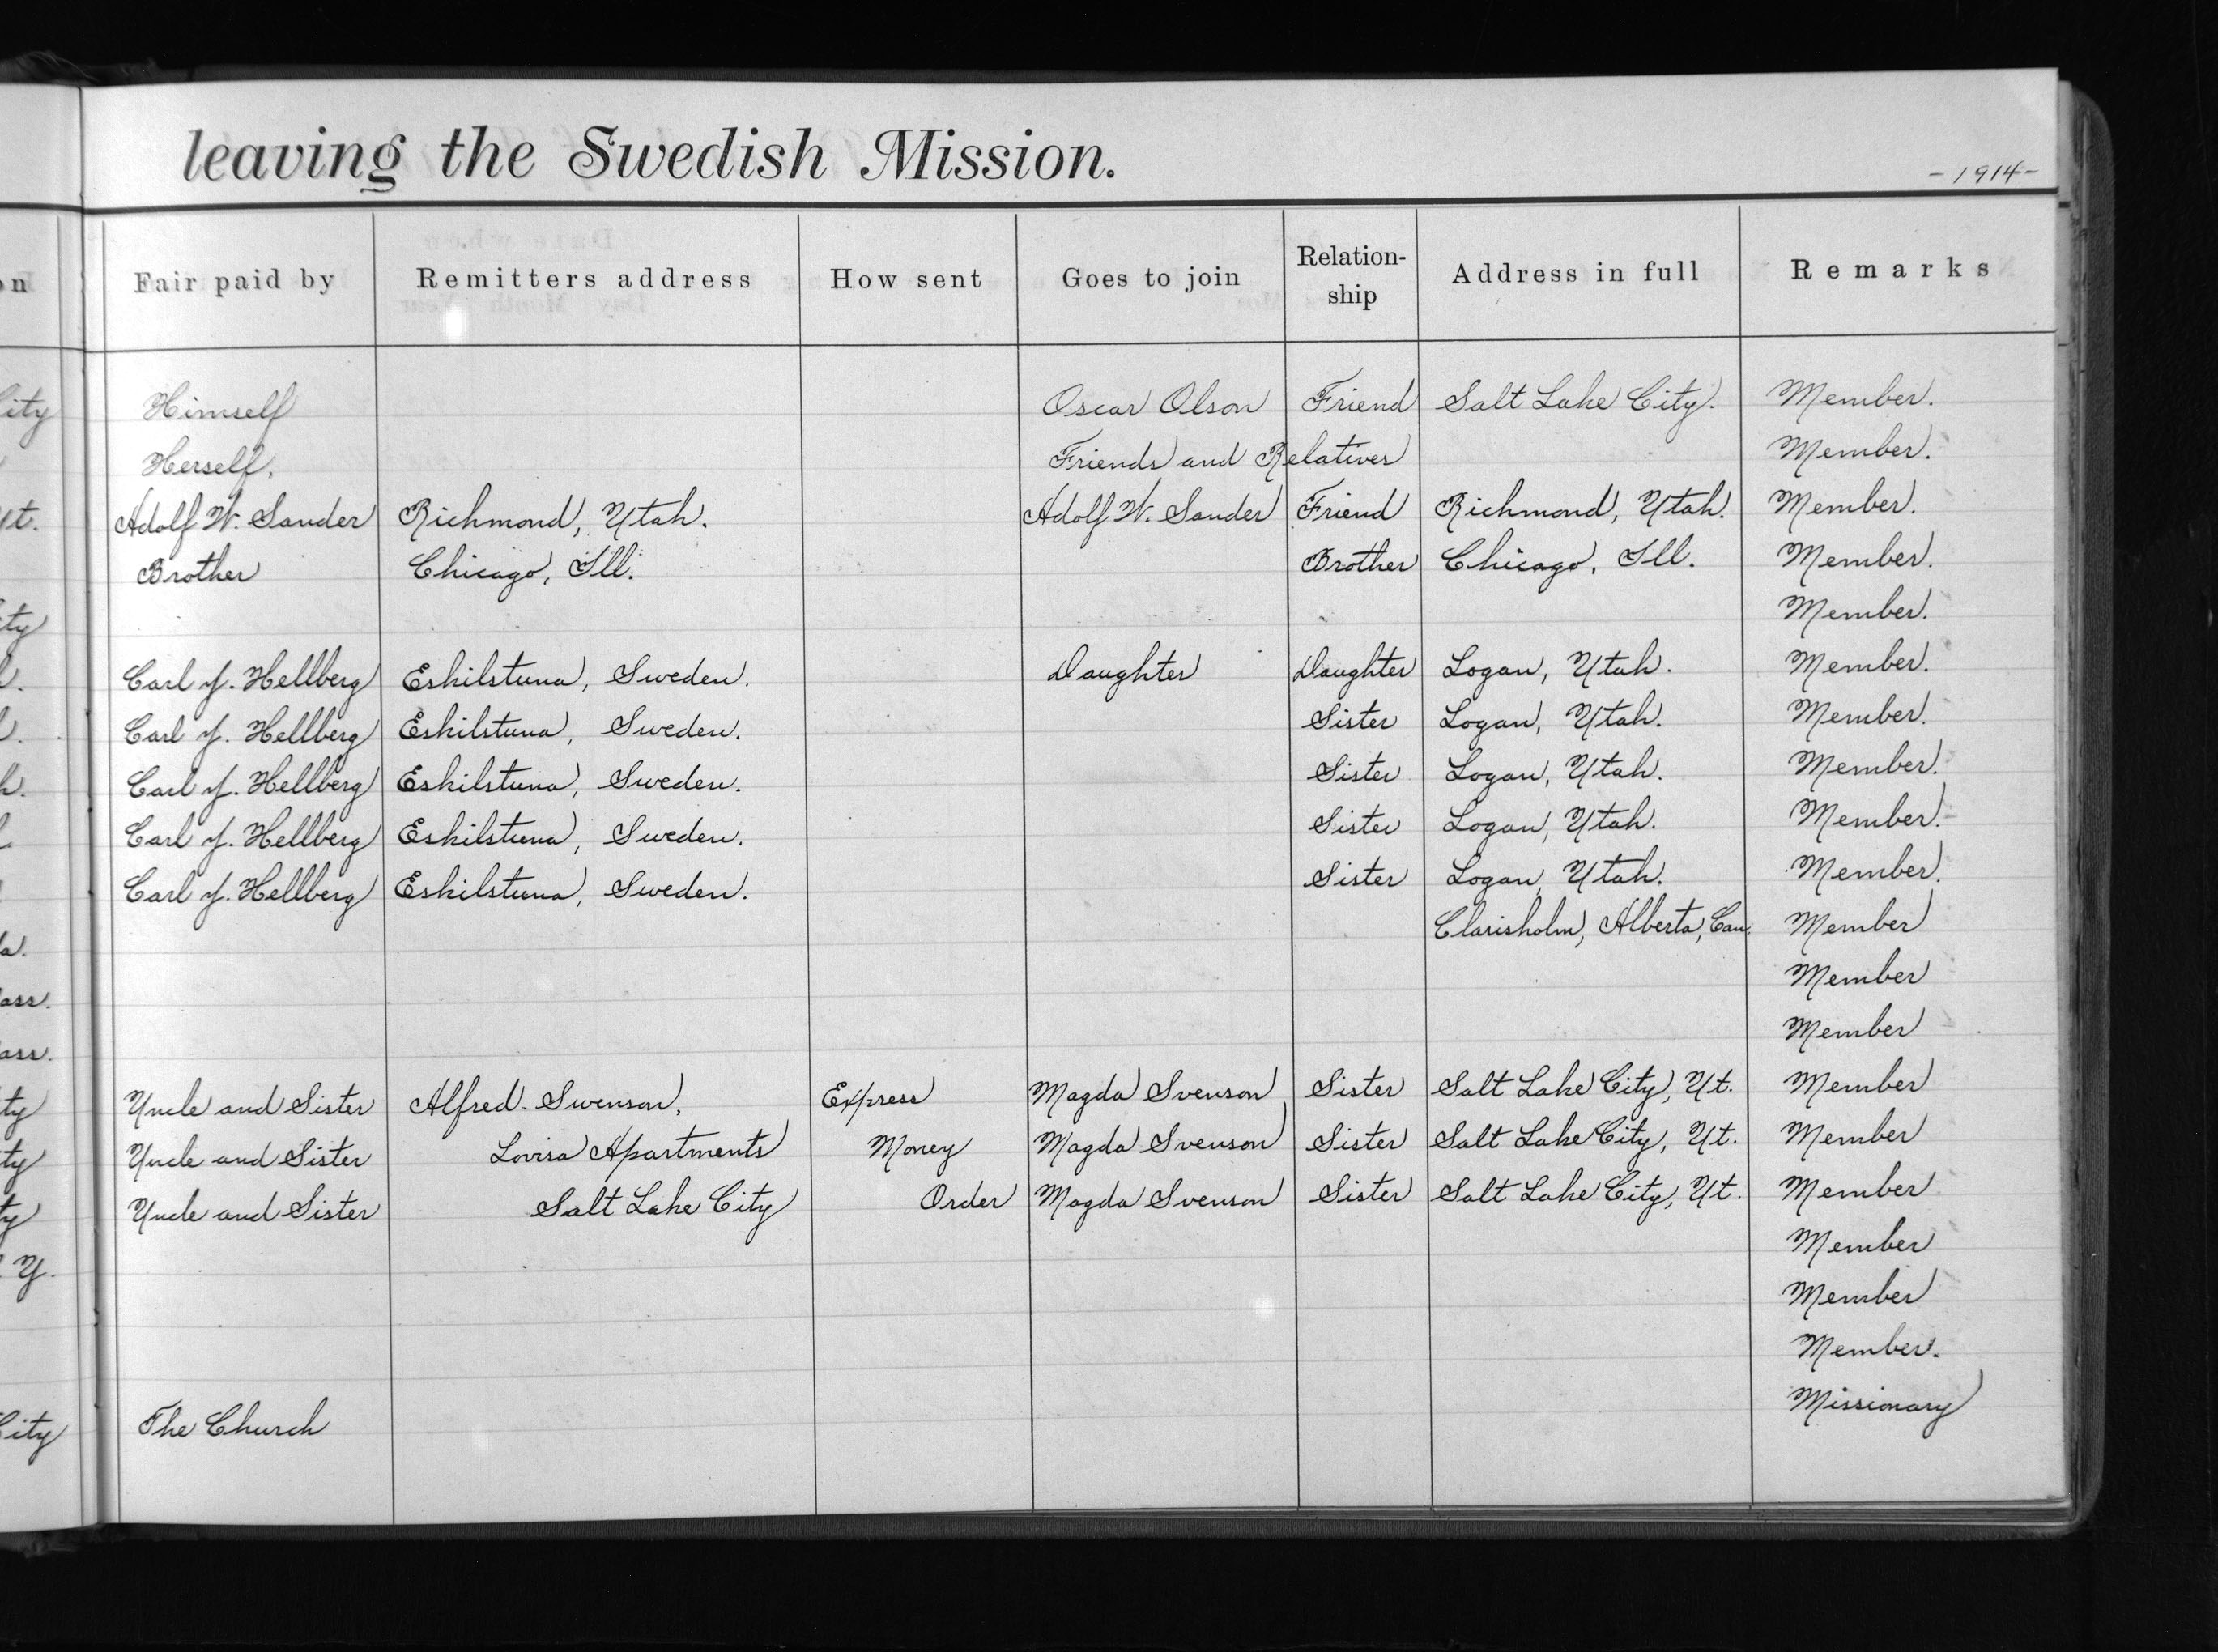 leaving the Swedish Mission.
-1914-
on Fair paid by Remitters address How sent Goes to join Relation- Address in full Remarks
ship
City Himself Oscar Olson Friend Salt Lake City. Member.
Herself. Friends and Relatives Member.
Ut. Adolf W. Sander Richmond, Utah. Adolf W. Sander Friend Richmond, Utah. Member.
Brother Chicago, Ill. Brother Chicago, Ill. Member.
ty Member.
Carl J. Hellberg Eskilstuna, Sweden. Daughter Daughter Logan, Utah. Member.
Carl J. Hellberg Eskilstuna, Sweden. Sister Logan, Utah. Member.
h. Carl J. Hellberg Eskilstuna, Sweden. Sister Logan, Utah. Member.
Carl J. Hellberg Eskilstuna, Sweden. Sister Logan, Utah. Member.
Carl J. Hellberg Eskilstuna, Sweden. Sister Logan, Utah. Member.
a. Clarisholm, Alberta, Can. Member
ass. Member
ass. Member
ty Uncle and Sister Alfred Swenson, Express Magda Svenson Sister Salt Lake City, Ut. Member
ty Uncle and Sister Lovisa Apartments Money Magda Svenson Sister Salt Lake City, Ut. Member
ty Uncle and Sister Salt Lake City Order Magda Svenson Sister Salt Lake City, Ut. Member
Y. Member
Member
Member.
City The Church Missionary